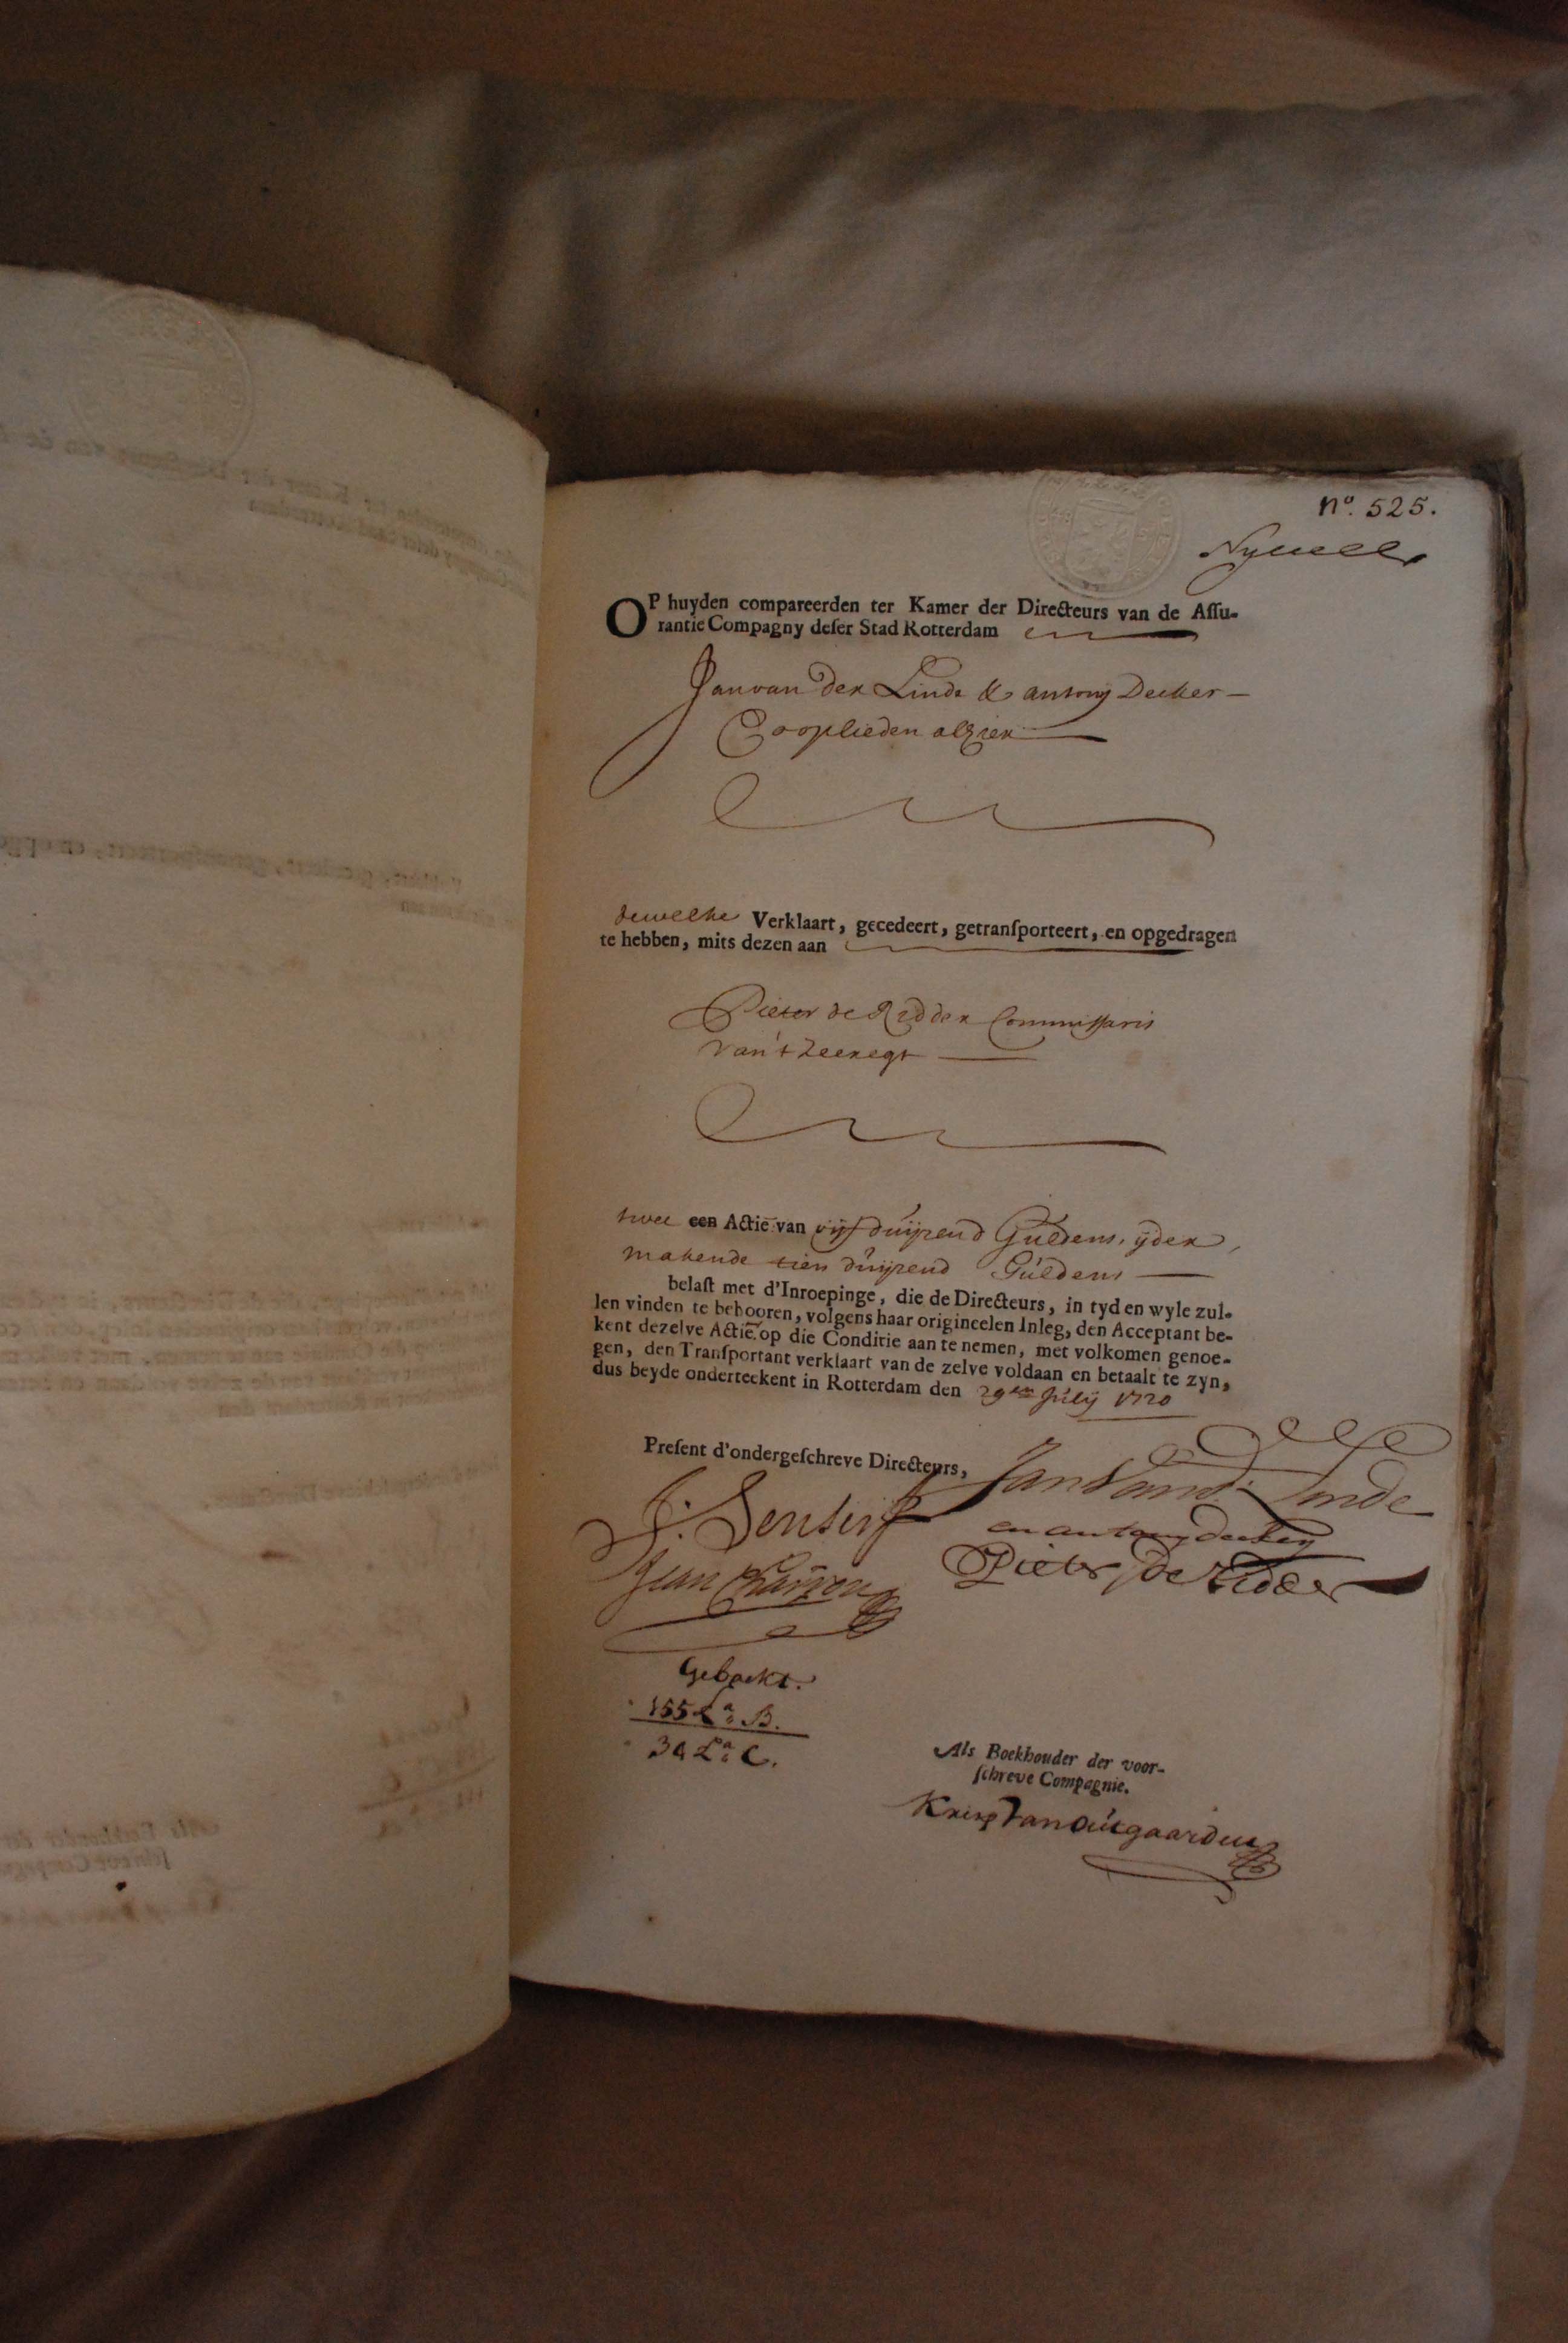 nº. 525.
OP huyden compareerden ter Kamer der Directeurs van de Aſſu-
rantie Compagny deſer Stad Rotterdam
Jan van der Linde & antonij Decker
Cooplieden alhier
dewelke Verklaart, gecedeert, getranſporteert, en opgedragen
te hebben, mits dezen aan
Pieter de Ridder Commissaris
van 't Zeeregt
twee een Actie van vijf duijzend Guldens, ijder,
makende tien duijzend Guldens
belaſt met d'Inroepinge, die de Directeurs, in tyd en wyle zul-
len vinden te behooren, volgens haar origineelen Inleg, den Acceptant be-
kent dezelve Actie op die Conditie aan te nemen, met volkomen genoe-
gen, den Tranſportant verklaart van de zelve voldaan en betaalt te zyn,
dus beyde onderteekent in Rotterdam den 29en Julij 1720
Preſent d'ondergeſchreve Directeurs,
Jan Vand. Linde
en antony decker
Pieter de Ridder
Geboekt.
155 La. B.
34 La. C.
Als Boekhouder der voor-
ſchreve Compagnie.